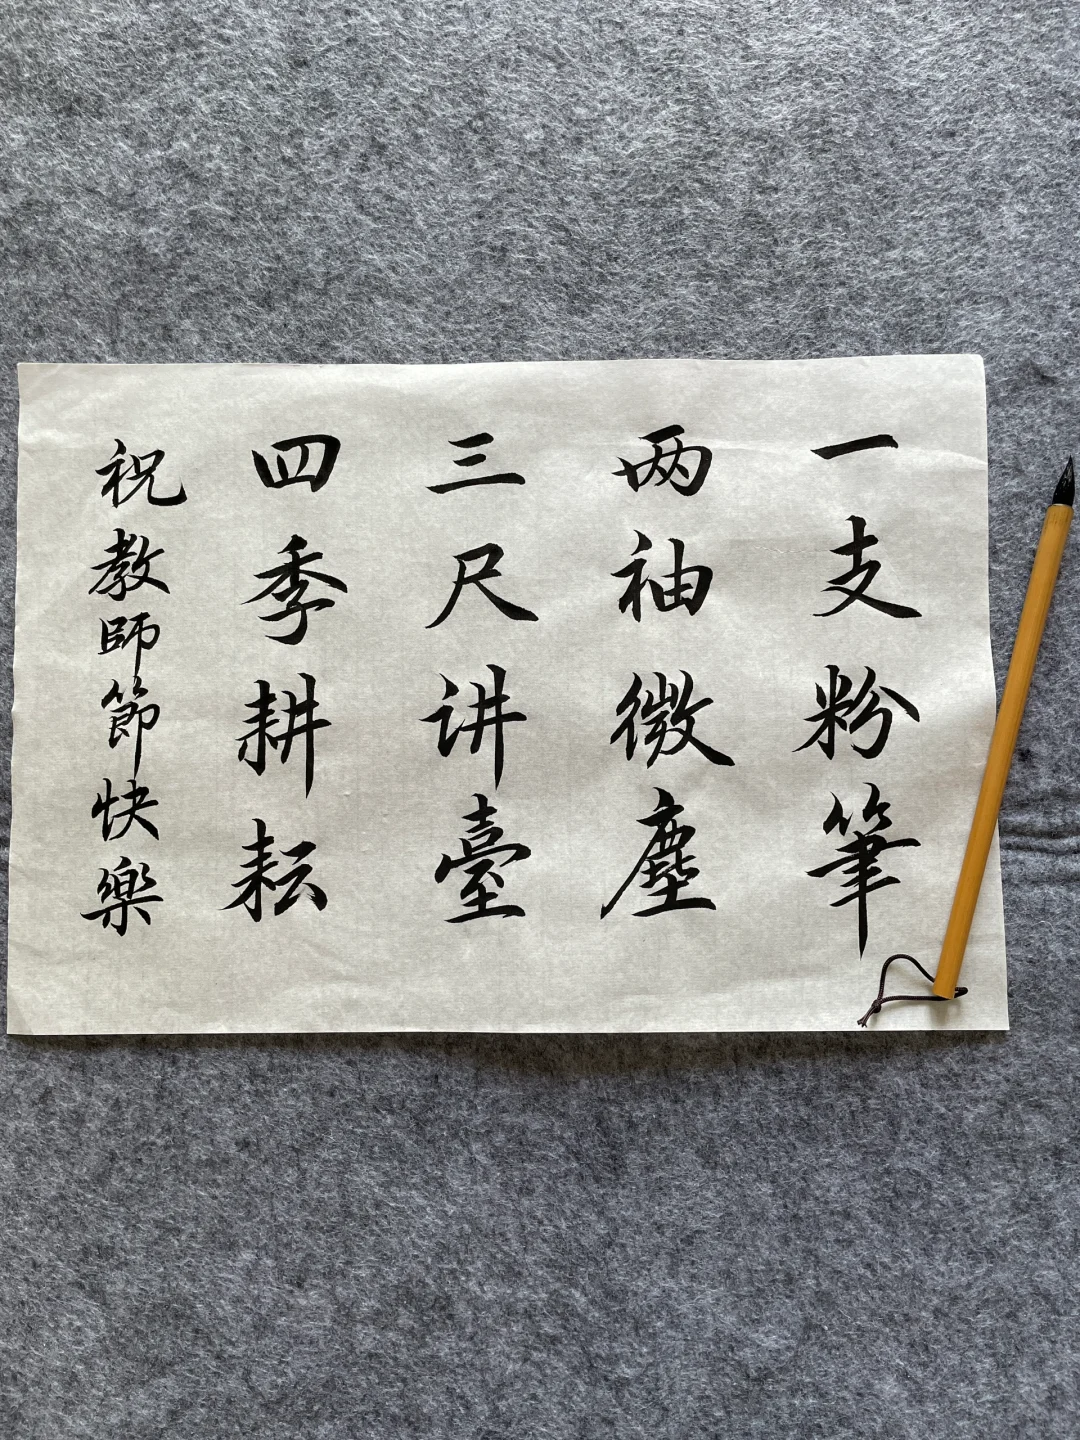 一支粉筆
两袖微塵
三尺讲臺
四季耕耘
祝教師節快樂